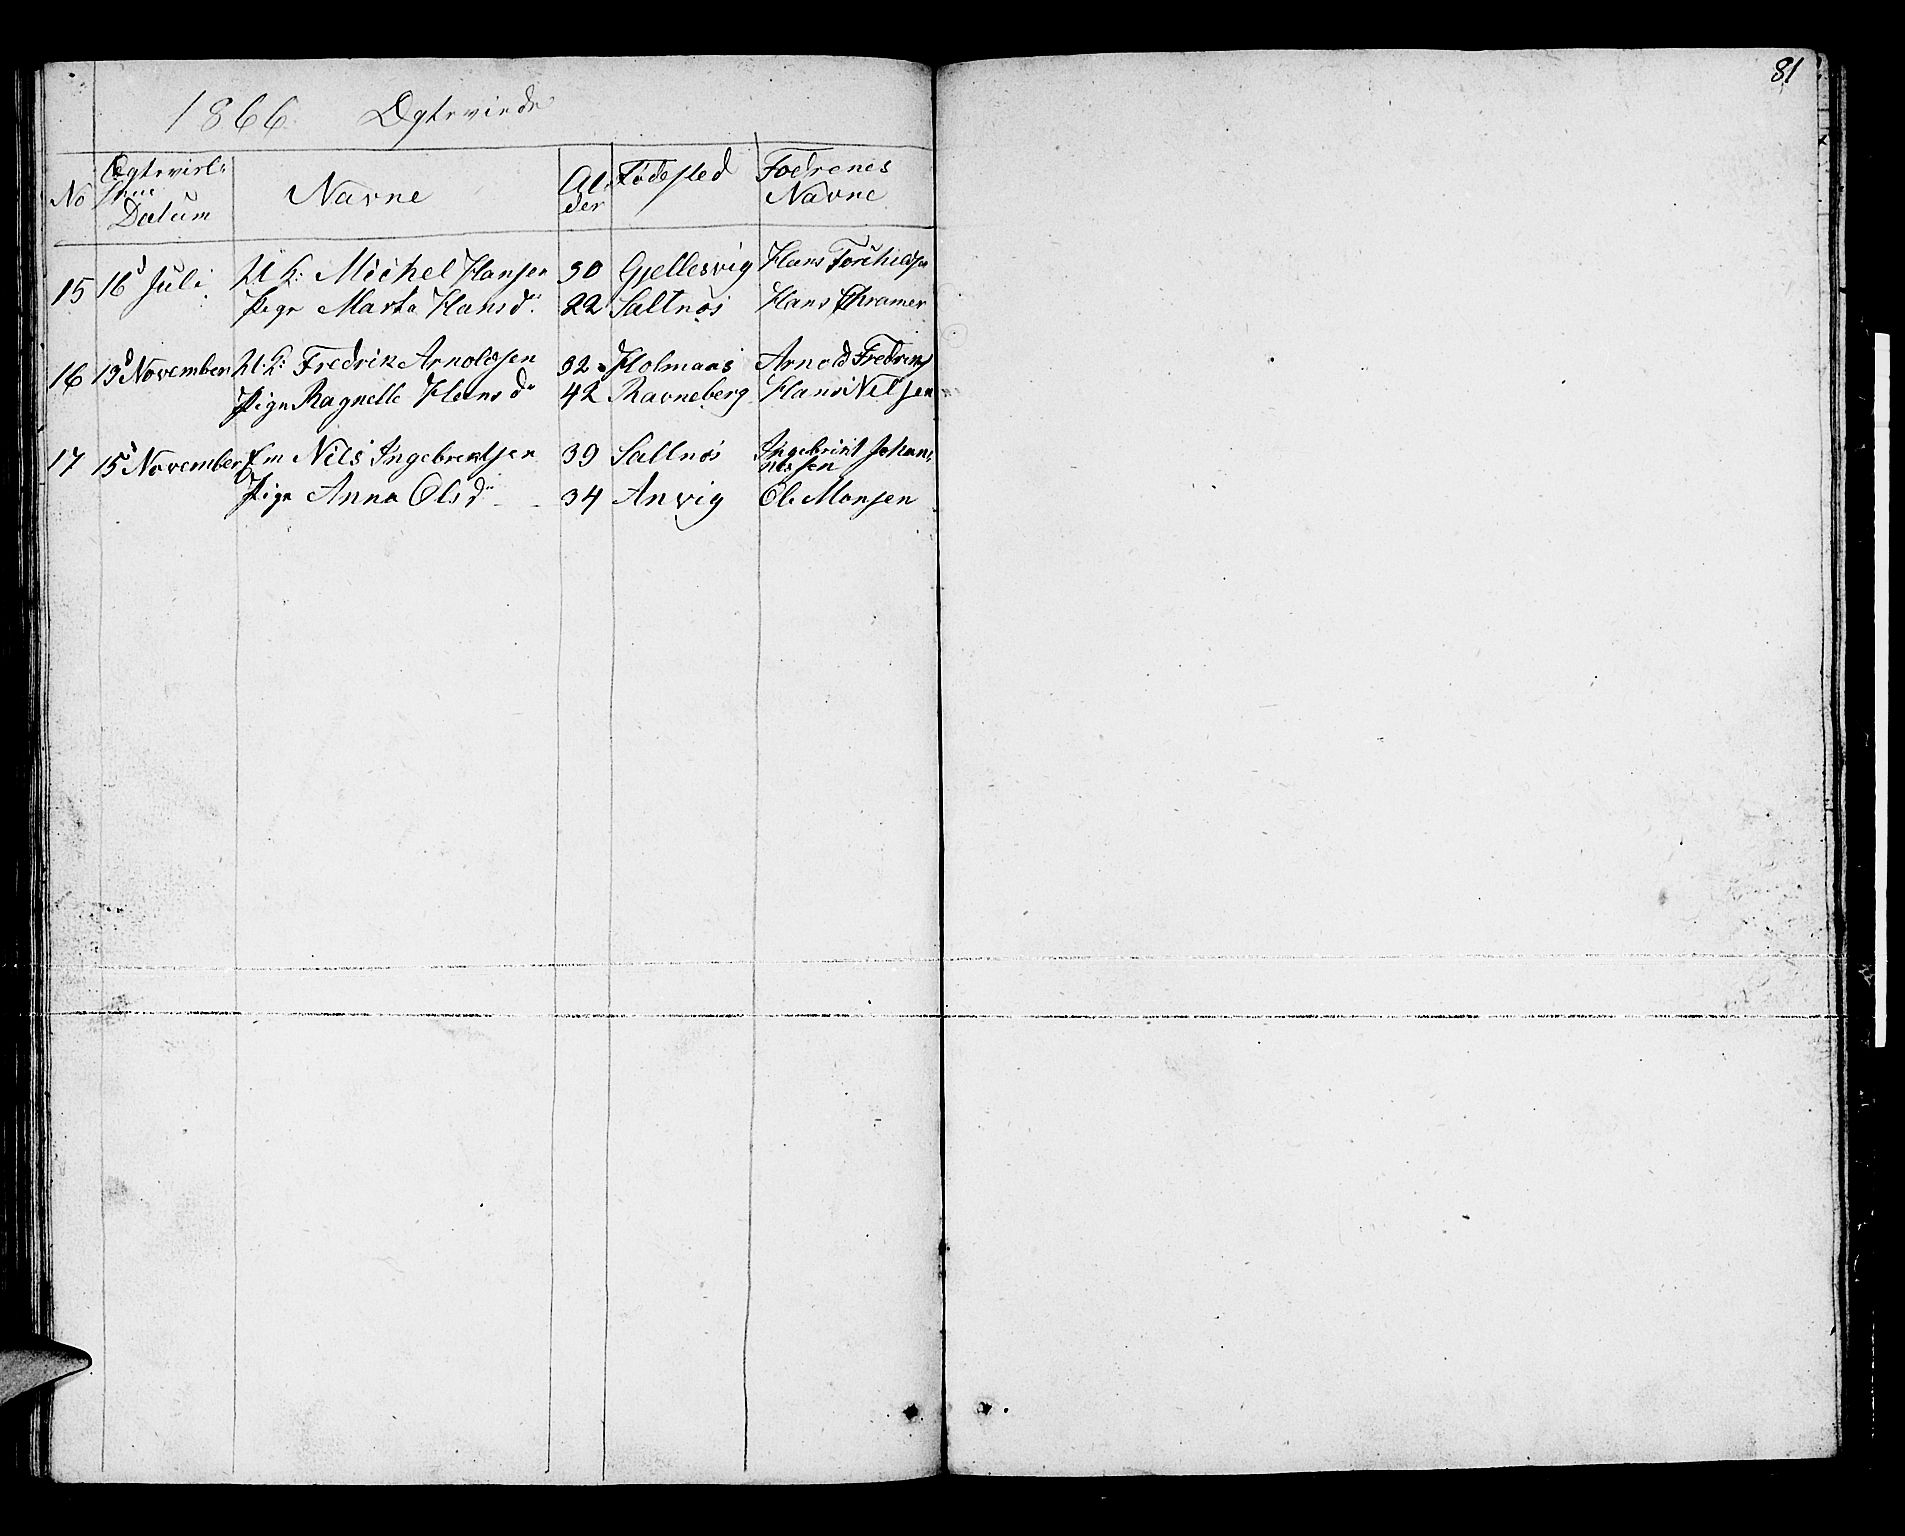 81
1866 Ægtevirde
No Ægtevirl: Datum Navne Alder Fødested Fædrenes Navne
15 16d Juli U.K: Michel Hansen 30 Gjellesvig Hans Torkildsen
Pige Marta Hansd: 22 Saltnøs Hans Chramer
16 13d November U.K: Fredrik Arnoldsen 32 Holmaas Arnold Fredriks
Pige Ragnelle Hansd 42 Ravneberg Hans Nilsen
17 15d November Em Nils Ingebrentsen 39 Saltnøs Ingebrint Johan:
nessen
Pige Anna Olsd 34 Anvig Ole Monsen